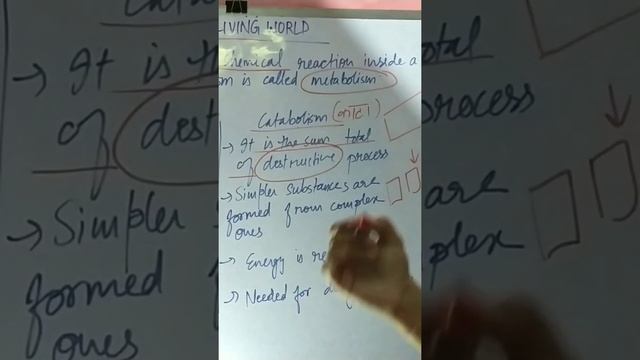 LIVING WORLD
chemical reaction inside a
is called metabolism
Catabolism
→ It is the sum total
of destructive process
→ Simpler substances are
formed from complex
ones
→ Energy is
→ Needed for